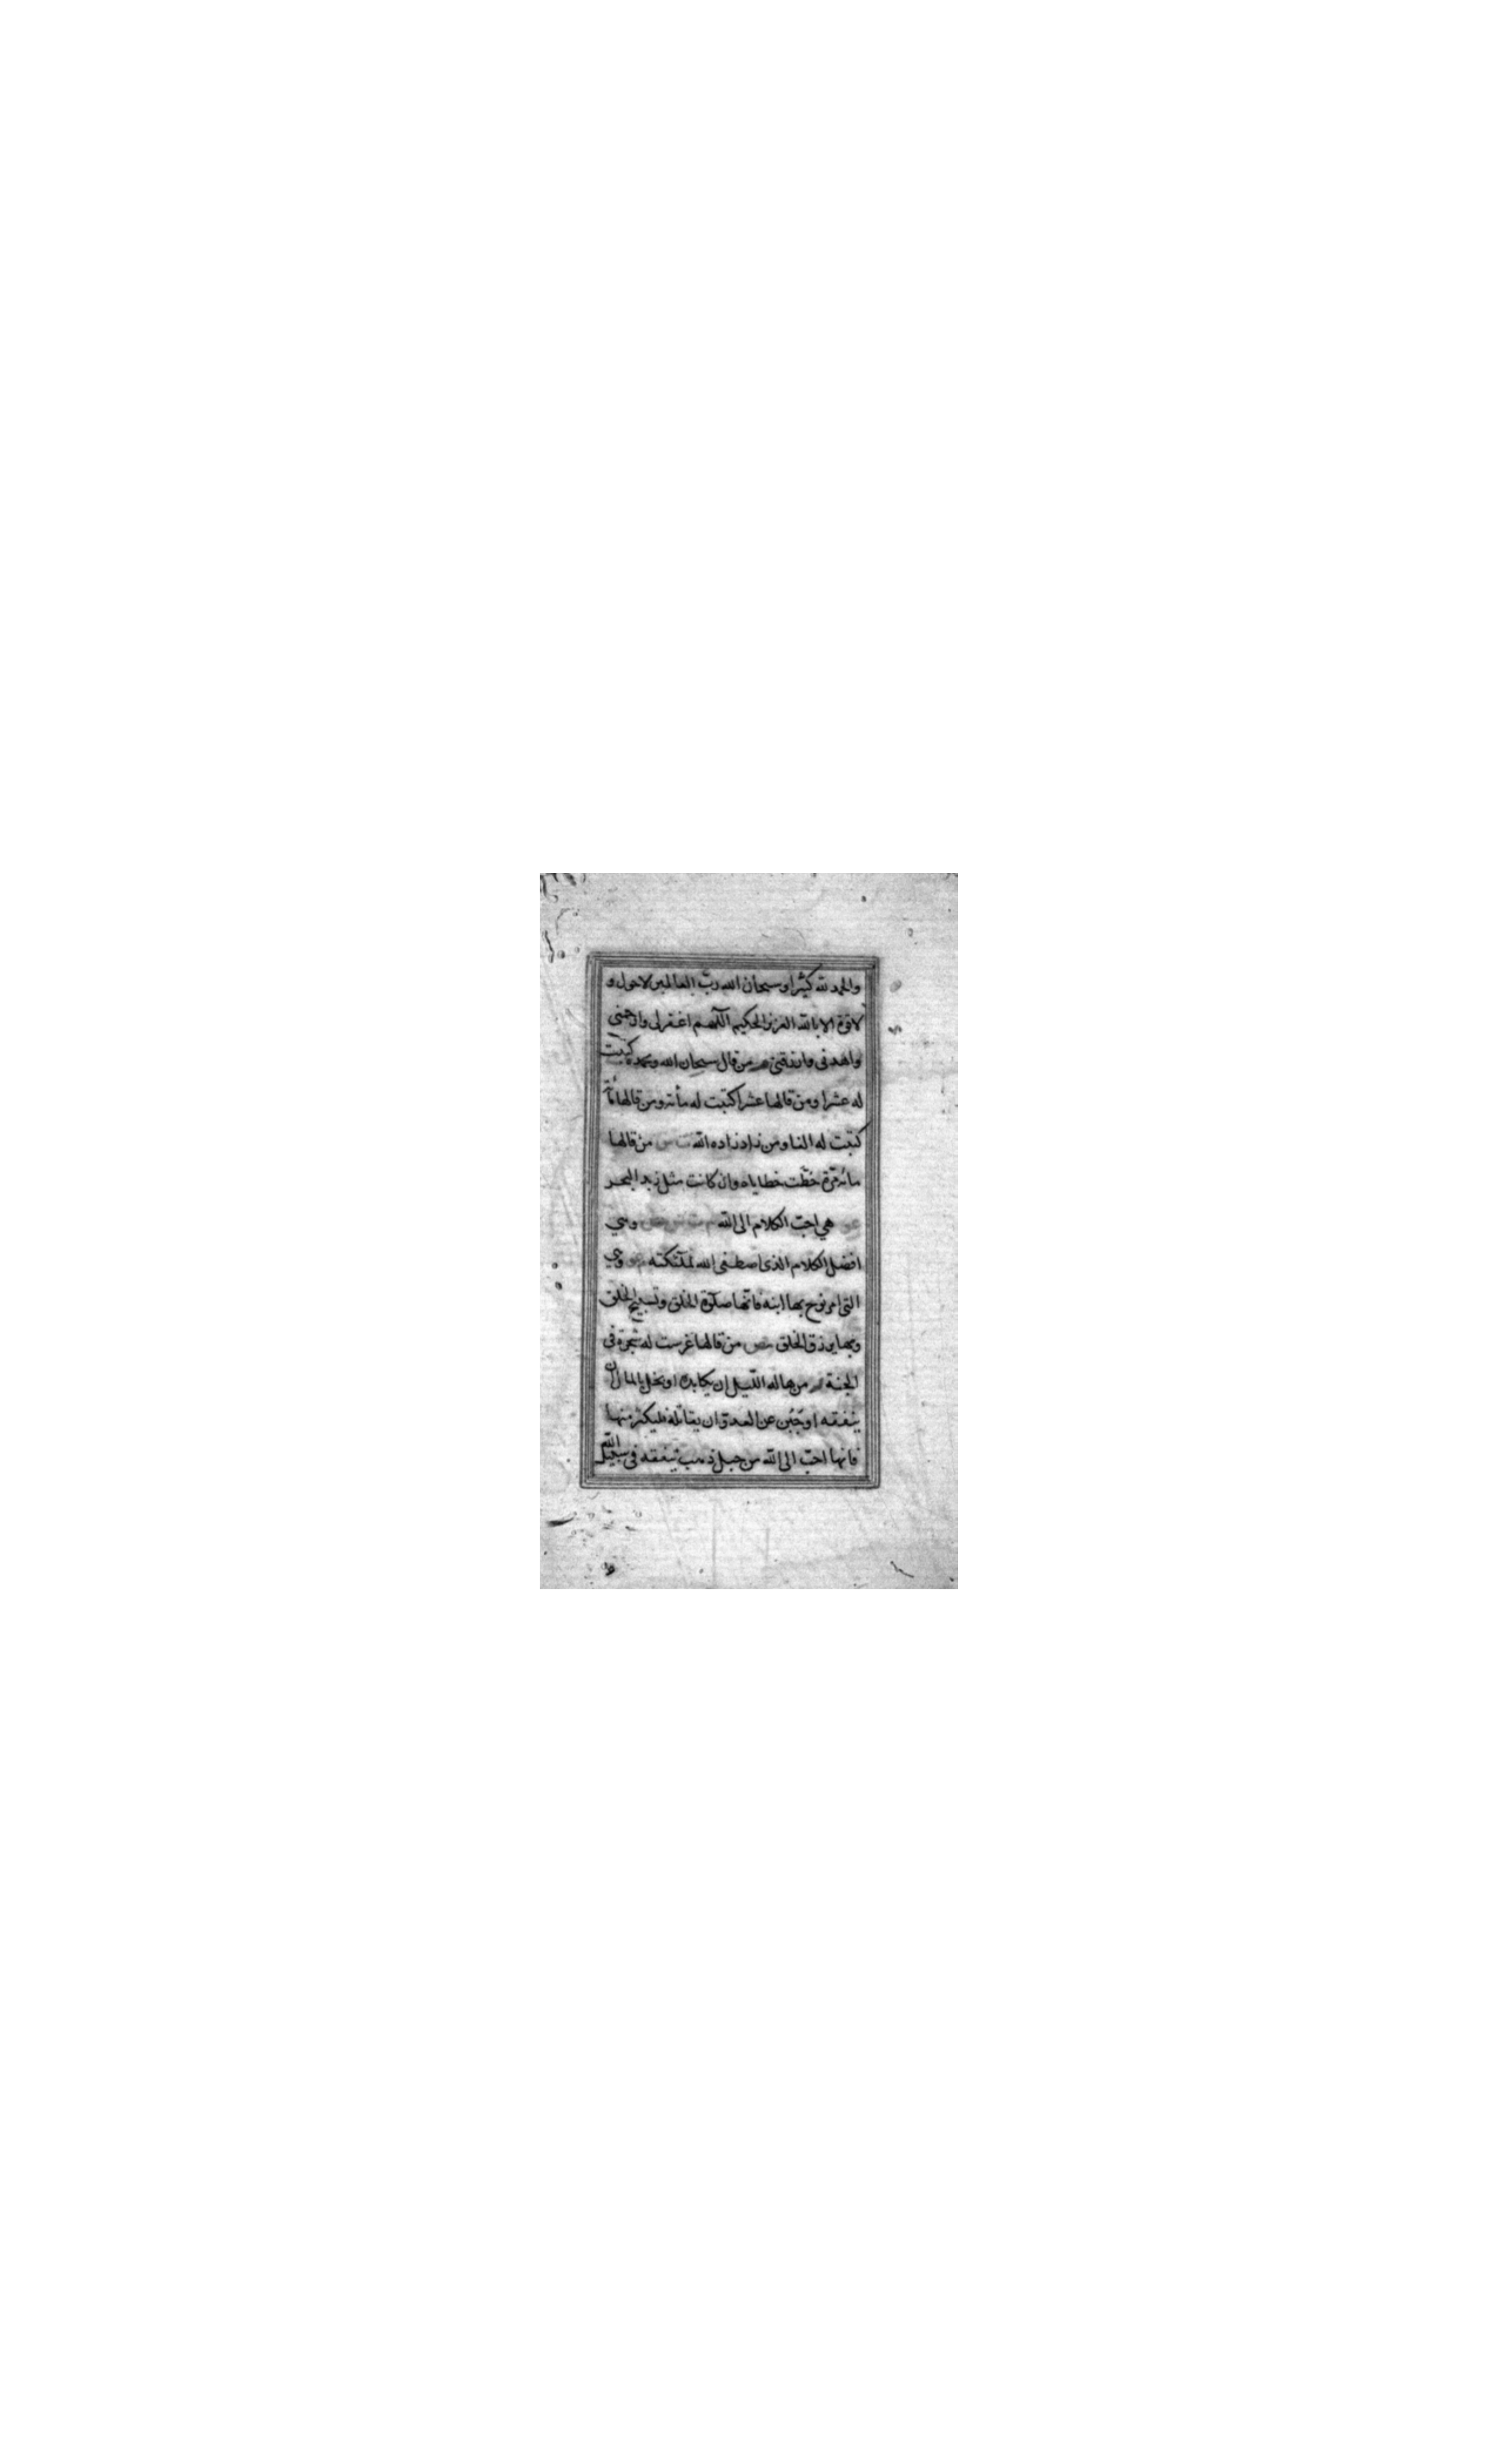 والحمد لله كثيرا وسبحان الله ربّ العالمين لا حول و
لا قوة الا بالله العزيز الحكيم اللّهم اغفرلى وارحمنى
واهدنى وارزقنى من قال سبحان الله وبحمده كتبت
له عشرا ومن قالها عشرا كتبت له مأئة ومن قالها مأئة
كتبت له الفا ومن زاد زاده الله ت س من قالها
مائة مرّة حُطّت خطاياه وان كانت مثل زبد البحر
عو هي احبّ الكلام الى الله م ت س مص وهي
افضل الكلام الذى اصطفى الله لملٓئكته عو وهي
التى امر نوح بها ابنه فانّها صلوة الخلق وتسبيح الخلق
وبها يرزق الخلق مص من قالها غرست له شجرة فى
الجنة ر من هاله اللّيل ان يكابده او بخل بالمال ان
ينفقه او جَبُن عن العدوّ ان يقاتله فليكثر منها
فانها احبّ الى الله من جبل ذهب ينفقه فى سبيل الله